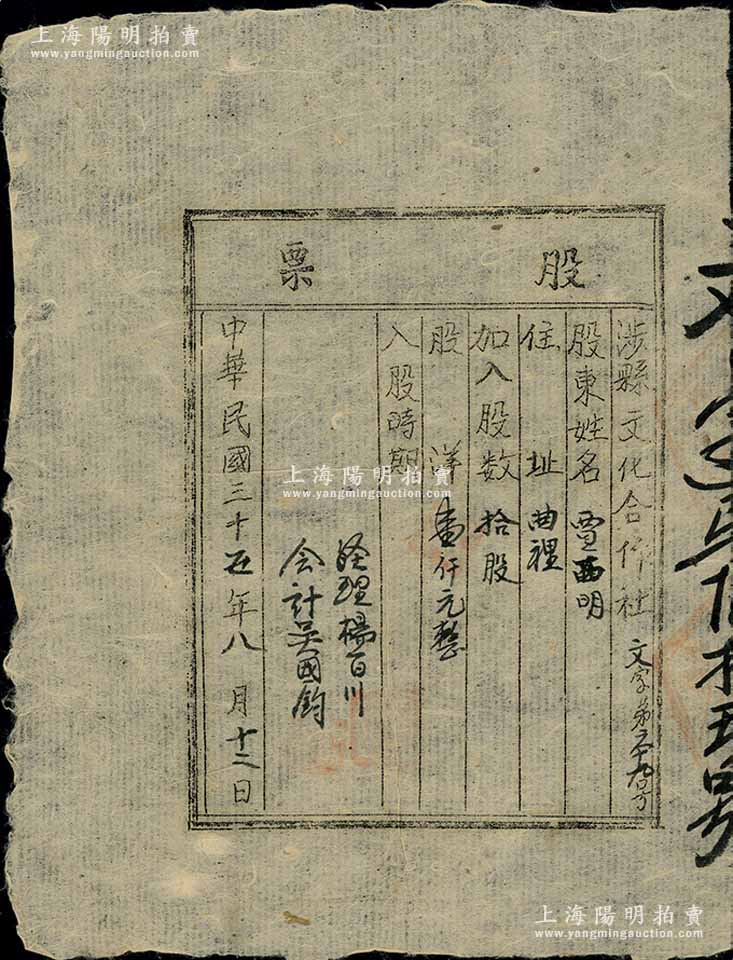 上海陽明拍賣
www.yangmingauction.com
上海陽明拍賣
www.yangmingauction.com
股票
涉縣文化合作社 文字第 号
股東姓名 賈西明
住址 曲裡
加入股数 拾股
股洋 壹仟元整
入股時期
经理楊百川
会計吴國鈞
中華民國三十五年八月十二日
上海陽明拍賣
www.yangmingauction.com
上海陽明拍賣
www.yangmingauction.com